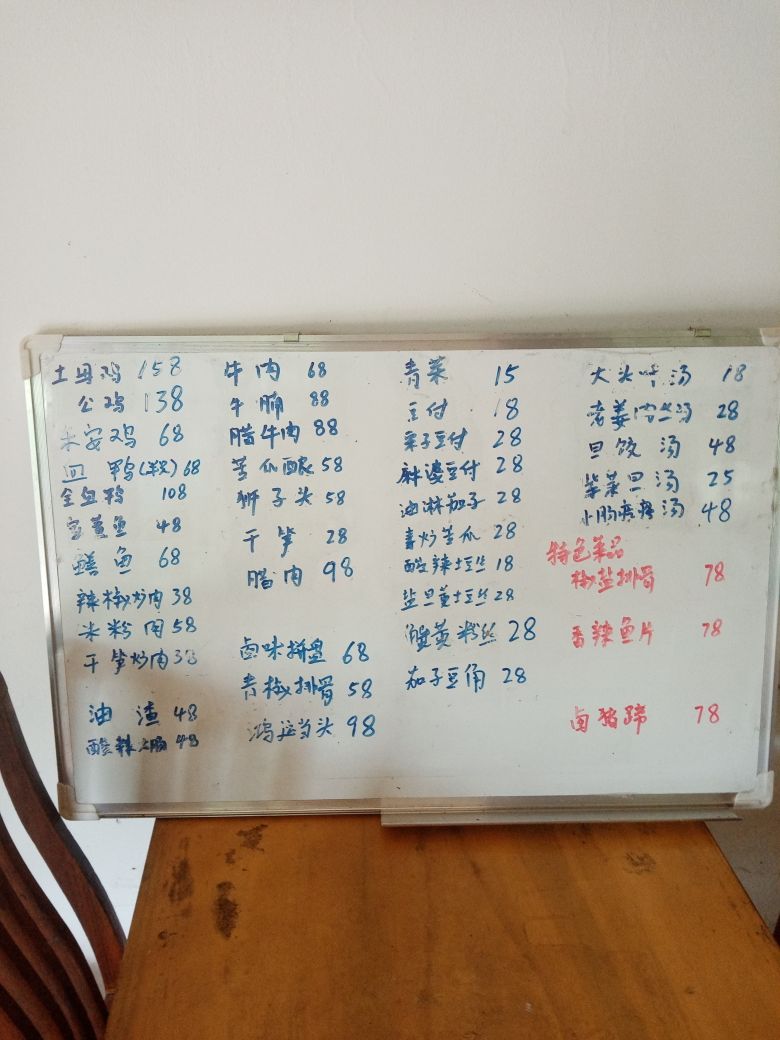 土母鸡 158
公鸡 138
东安鸡 68
血鸭 68
全血鸭 108
黄鱼 48
鳝鱼 68
辣椒炒肉 38
米粉肉 58
干笋炒肉 38
油渣 48
酸辣 48
牛肉 68
牛腩 88
腊牛肉 88
苦瓜酿 58
狮子头 58
干笋 28
腊肉 98
卤味拼盘 68
青椒排骨 58
鸿运当头 98
青菜 15
豆付 18
栗子豆付 28
麻婆豆付 28
油淋茄子 28
素炒苦瓜 28
酸辣土豆丝 18
盐旦黄土豆丝 28
蟹黄粉丝 28
茄子豆角 28
大头叶汤 18
老姜肉丝汤 28
旦饺汤 48
紫菜旦汤 25
小肠汤 48
特色菜品
椒盐排骨 78
香辣鱼片 78
卤猪蹄 78